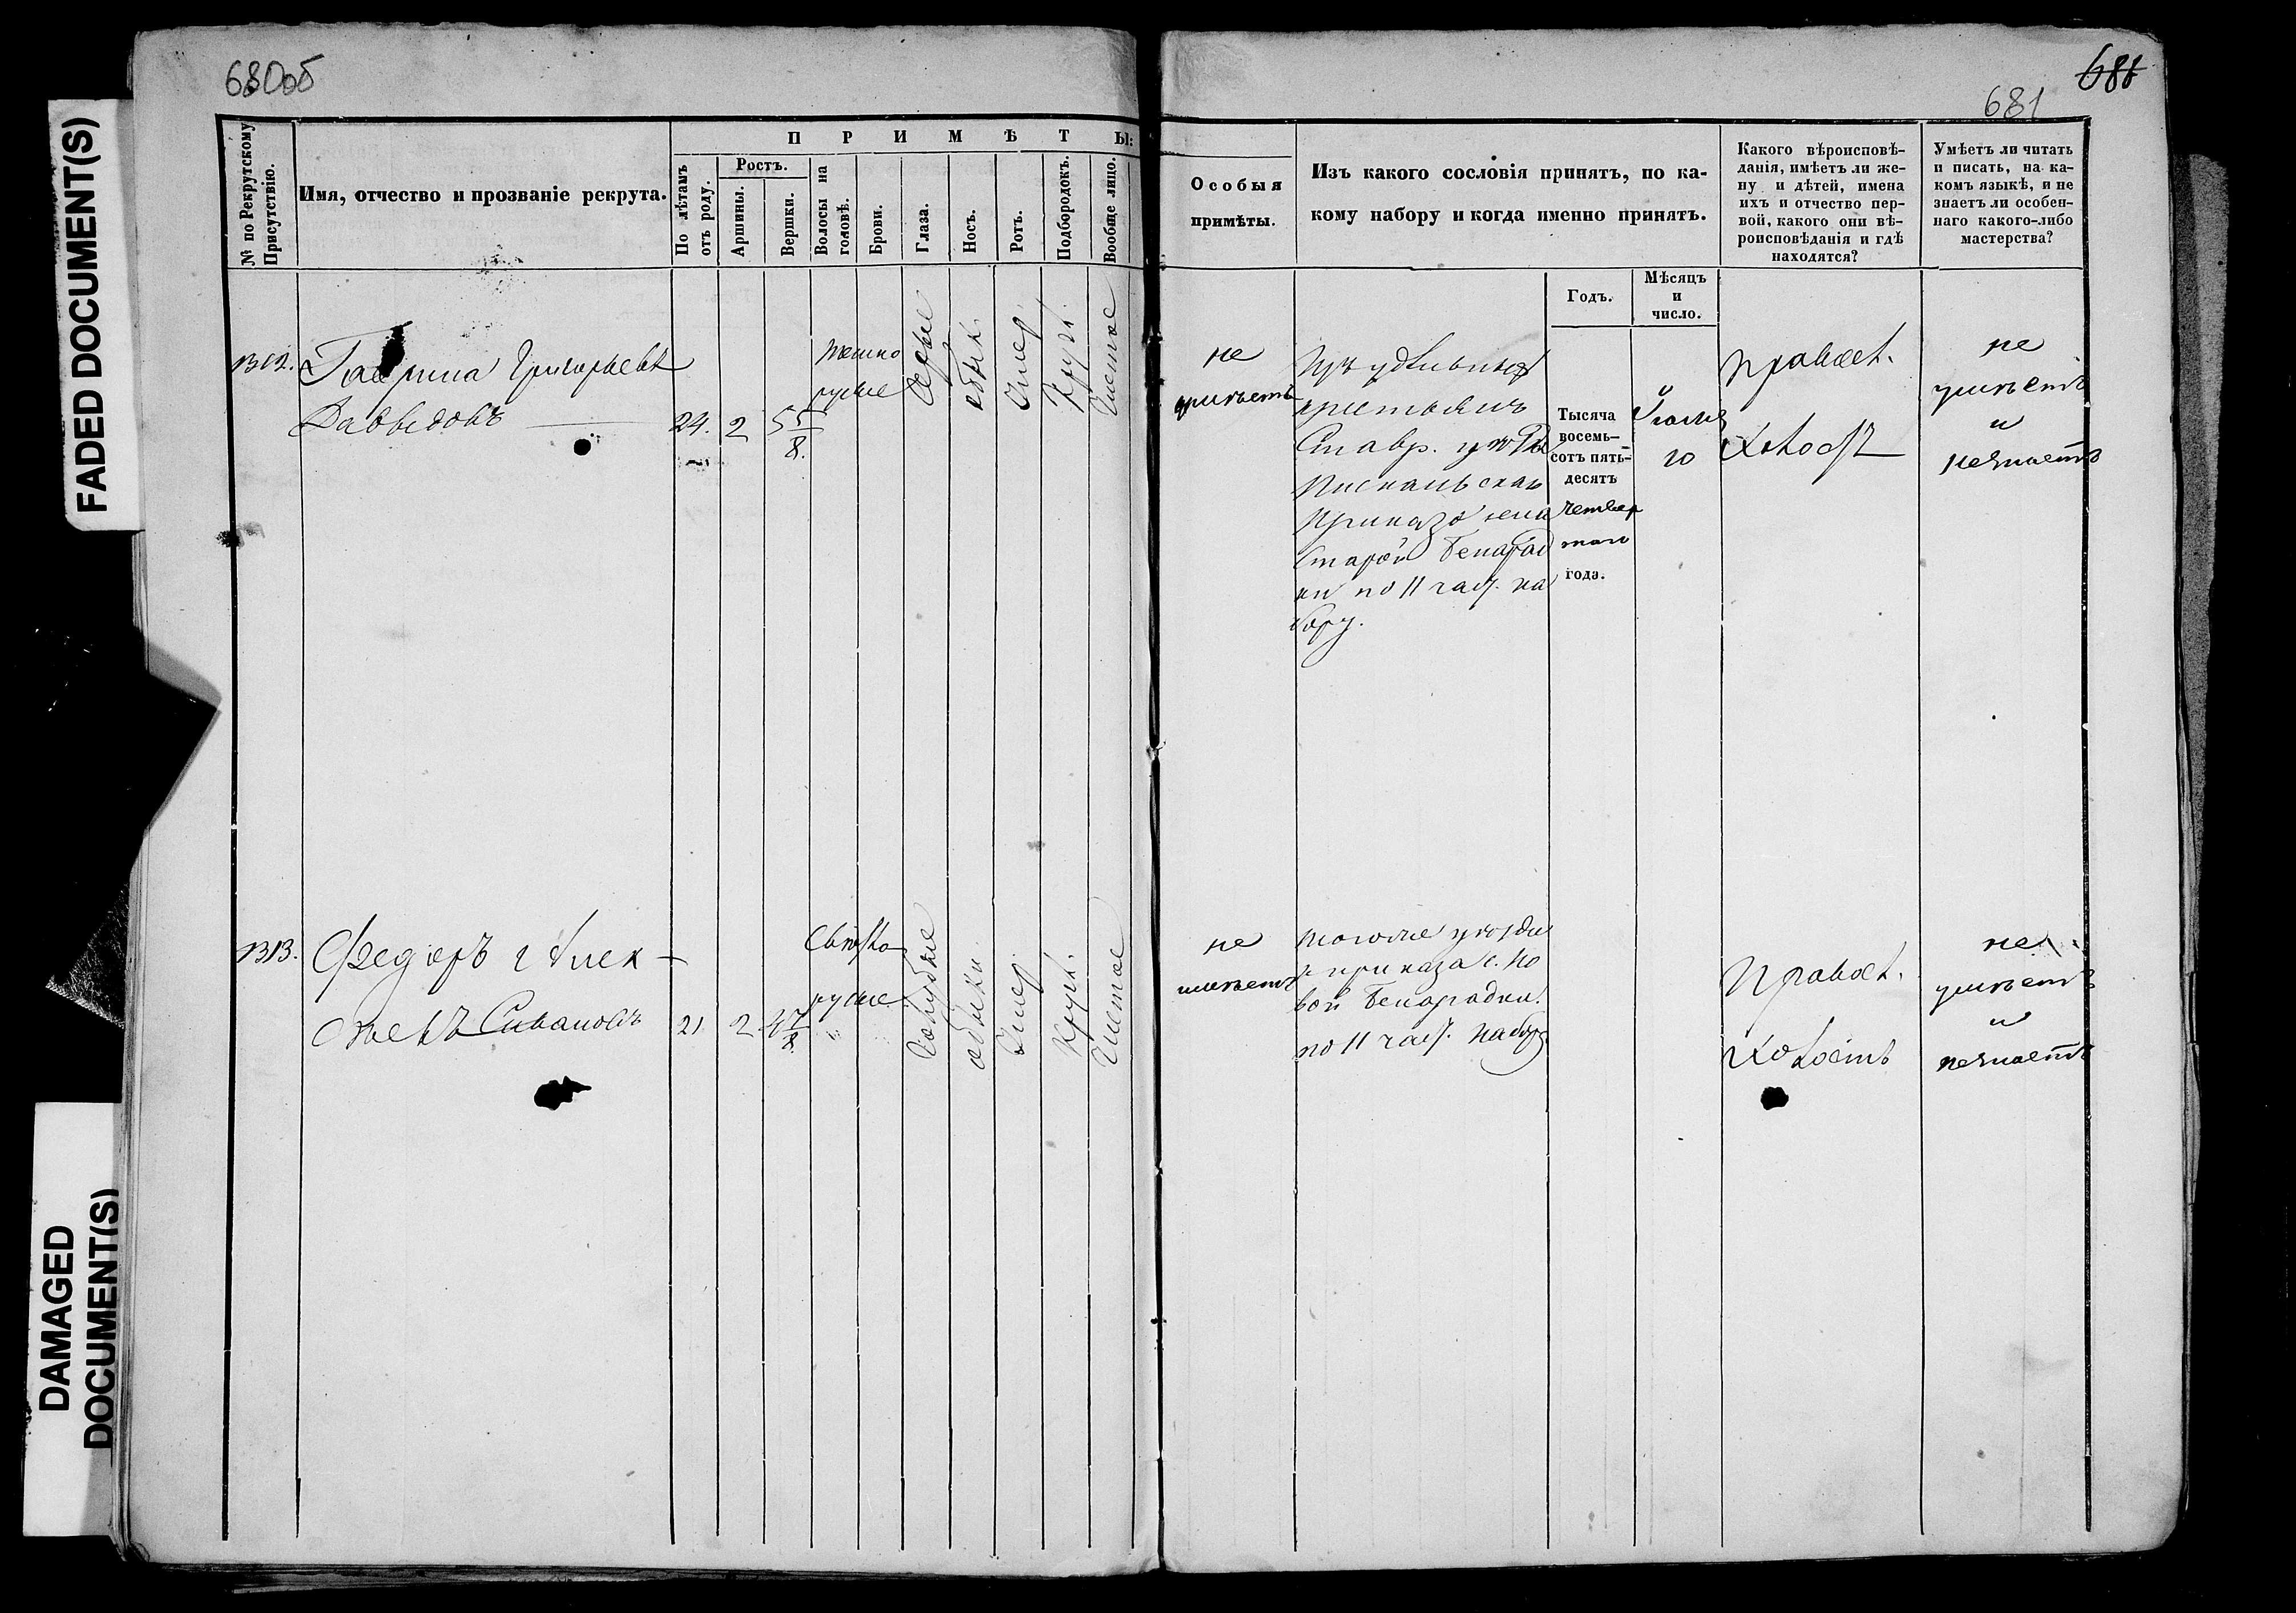 680об
688
681
FADED DOCUMENT(S)
DAMAGED
DOCUMENT(S)
№ по Рекрутскому
Присутствію.
Имя, отчество и прозваніе рекрута.
ПРИМѢТЫ:
По лѣтамъ
отъ роду.
Ростъ.
Аршины.
Вершки.
Волосы на
головѣ.
Брови.
Глаза.
Носъ.
Ротъ.
Подбородокъ.
Вообще лицо.
Особыя
примѣты.
Изъ какого сословія принятъ, по ка-
кому набору и когда именно принятъ.
Годъ.
Мѣсяцъ
и
число.
Какого вѣроисповѣ-
данія, имѣетъ ли же-
ну и дѣтей, имена
ихъ и отчество пер-
вой, какого они вѣ-
роисповѣданія и гдѣ
находятся?
Умѣетъ ли читать
и писать, на ка-
комъ языкѣ, и не
знаетъ ли особен-
наго какого-либо
мастерства?
1312.
Гаврила Григорьевъ
Давыдовъ
24.
2
5 5/8.
темно
русые
Серые
обык.
Умер.
Кругл.
Чистое
не
имѣетъ
Изъ удѣльныхъ
крестьянъ
Ставр. уѣзда
Пискальскаго
Приказа села
Старой Бинарад
ки по 11 част. на
бору.
Тысяча
восемь-
сотъ пять-
десятъ
четвер
таго
года.
Іюля
10
Правосл.
Холостъ
не
умѣетъ
и
незнаетъ
1313.
Федоръ Алек
сѣевъ Сивановъ
21
2
4 7/8.
Свѣтло
русые
Голубые
обыкн.
Умер.
Кругл.
Чистое
не
имѣетъ
тогоже уѣзда
и приказа с. Но
вой Бинарадки.
по 11 част. набору
Правосл.
Холостъ
не
умѣетъ
и
незнаетъ